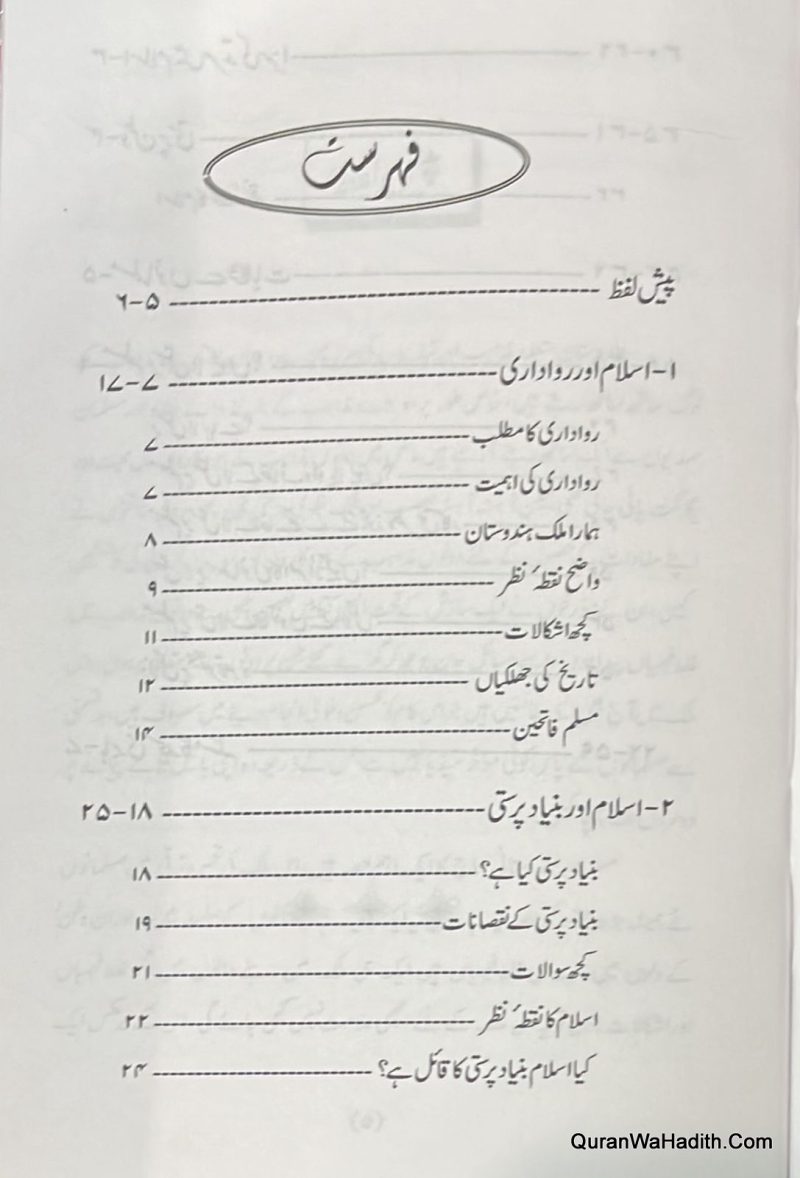 فہرست
پیش لفظ ---------- ۵-۶
۱- اسلام اور رواداری ---------- ۷-۱۷
رواداری کا مطلب ---------- ۷
رواداری کی اہمیت ---------- ۷
ہمارا ملک ہندوستان ---------- ۸
واضح نقطۂ نظر ---------- ۹
کچھ اشکالات ---------- ۱۱
تاریخ کی جھلکیاں ---------- ۱۲
مسلم فاتحین ---------- ۱۴
۲- اسلام اور بنیاد پرستی ---------- ۱۸-۲۵
بنیاد پرستی کیا ہے؟ ---------- ۱۸
بنیاد پرستی کے نقصانات ---------- ۱۹
کچھ سوالات ---------- ۲۱
اسلام کا نقطۂ نظر ---------- ۲۲
کیا اسلام بنیاد پرستی کا قائل ہے؟ ---------- ۲۴
QuranWaHadith.Com